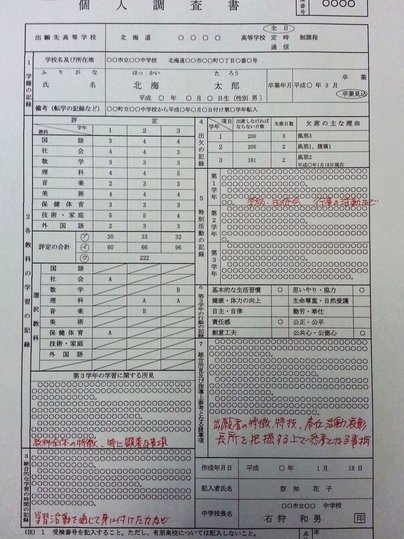 個人調査書
番号 〇〇〇〇
出願先高等学校 北海道 〇〇〇〇〇〇 高等学校 全日 定時 通信 制課程
1 学籍の記録
学校名及び所在地 〇〇市立〇〇中学校 北海道〇〇市〇〇町〇丁目〇番〇号
ふりがな ほっかい たろう
氏名 北海 太郎 卒業年月 平成〇年3月 卒業 卒業見込
平成 〇年 〇月 〇日生(性別 男)
備考(転学の記録など) 〇〇町立〇〇中学校から平成〇年〇月〇日付け第〇学年転入
2 各教科の学習の記録
評定
教科 学年 1 2 3
国語 3 4 4
社会 3 4 4
数学 3 3 3
理科 4 4 5
音楽 2 3 3
美術 3 3 3
保健体育 3 3 3
技術・家庭 5 5 4
外国語 2 3 3
評定の合計 ㋐ 30 33 32
㋑ 60 66 96
㋒ 222
選択教科
国語
社会
数学 B
理科 A A
音楽 B
美術
保健体育 A A
技術・家庭
外国語
第3学年の学習に関する所見
教科全体の特徴、特に顕著な事項
3 総合的な学習の時間の記録
学習活動を通じて身に付けた力など
4 出欠の記録
項目 学年 出席しなければならない日数 欠席日数 欠席の主な理由
1 206 3 風邪3
2 206 2 風邪1、腹痛1
3 161 2 風邪2
平成〇年1月18日現在
5 特別活動の記録
第1学年
第2学年
第3学年
6 第3学年の行動の記録
基本的な生活習慣 〇 思いやり・協力 〇
健康・体力の向上 生命尊重・自然愛護
自主・自律 勤労・奉仕
責任感 〇 公正・公平
創意工夫 公共心・公徳心 〇
7 総合所見及び指導上参考となる諸事項
出願者の特徴、特技、奉仕活動、表彰
長所を把握する上で参考となる事柄
作成年月日 平成 〇年 1月 18日
記入者氏名 空知 花子
中学校長名 〇〇市立〇〇 中学校
石狩 和男 印
(注) 1 受検番号を記入すること。ただし、有朋高校については記入しない。